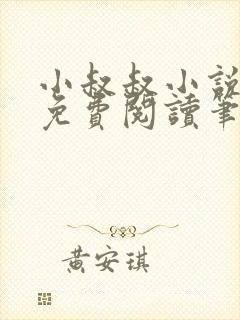 小叔叔小說
免費閱讀筆
黃安琪